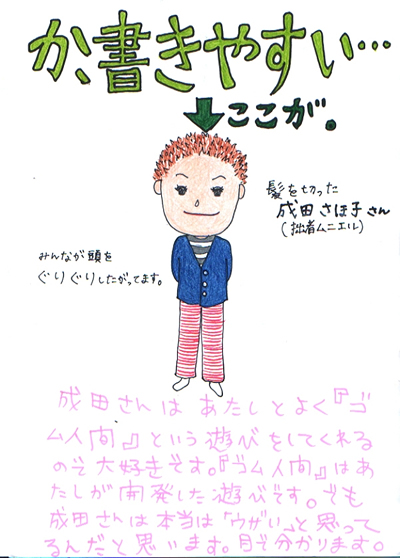 か、書きやすい…
↓ここが。
髪を切った
成田さほ子さん
(拙者ムニエル)
みんなが頭を
ぐりぐりしたがってます。
成田さんはあたしとよく『ゴ
ム人間』という遊びをしてくれる
ので大好きです。『ゴム人間』はあ
たしが開発した遊びです。でも
成田さんは本当は「ウザい」と思って
るんだと思います。目で分かります。